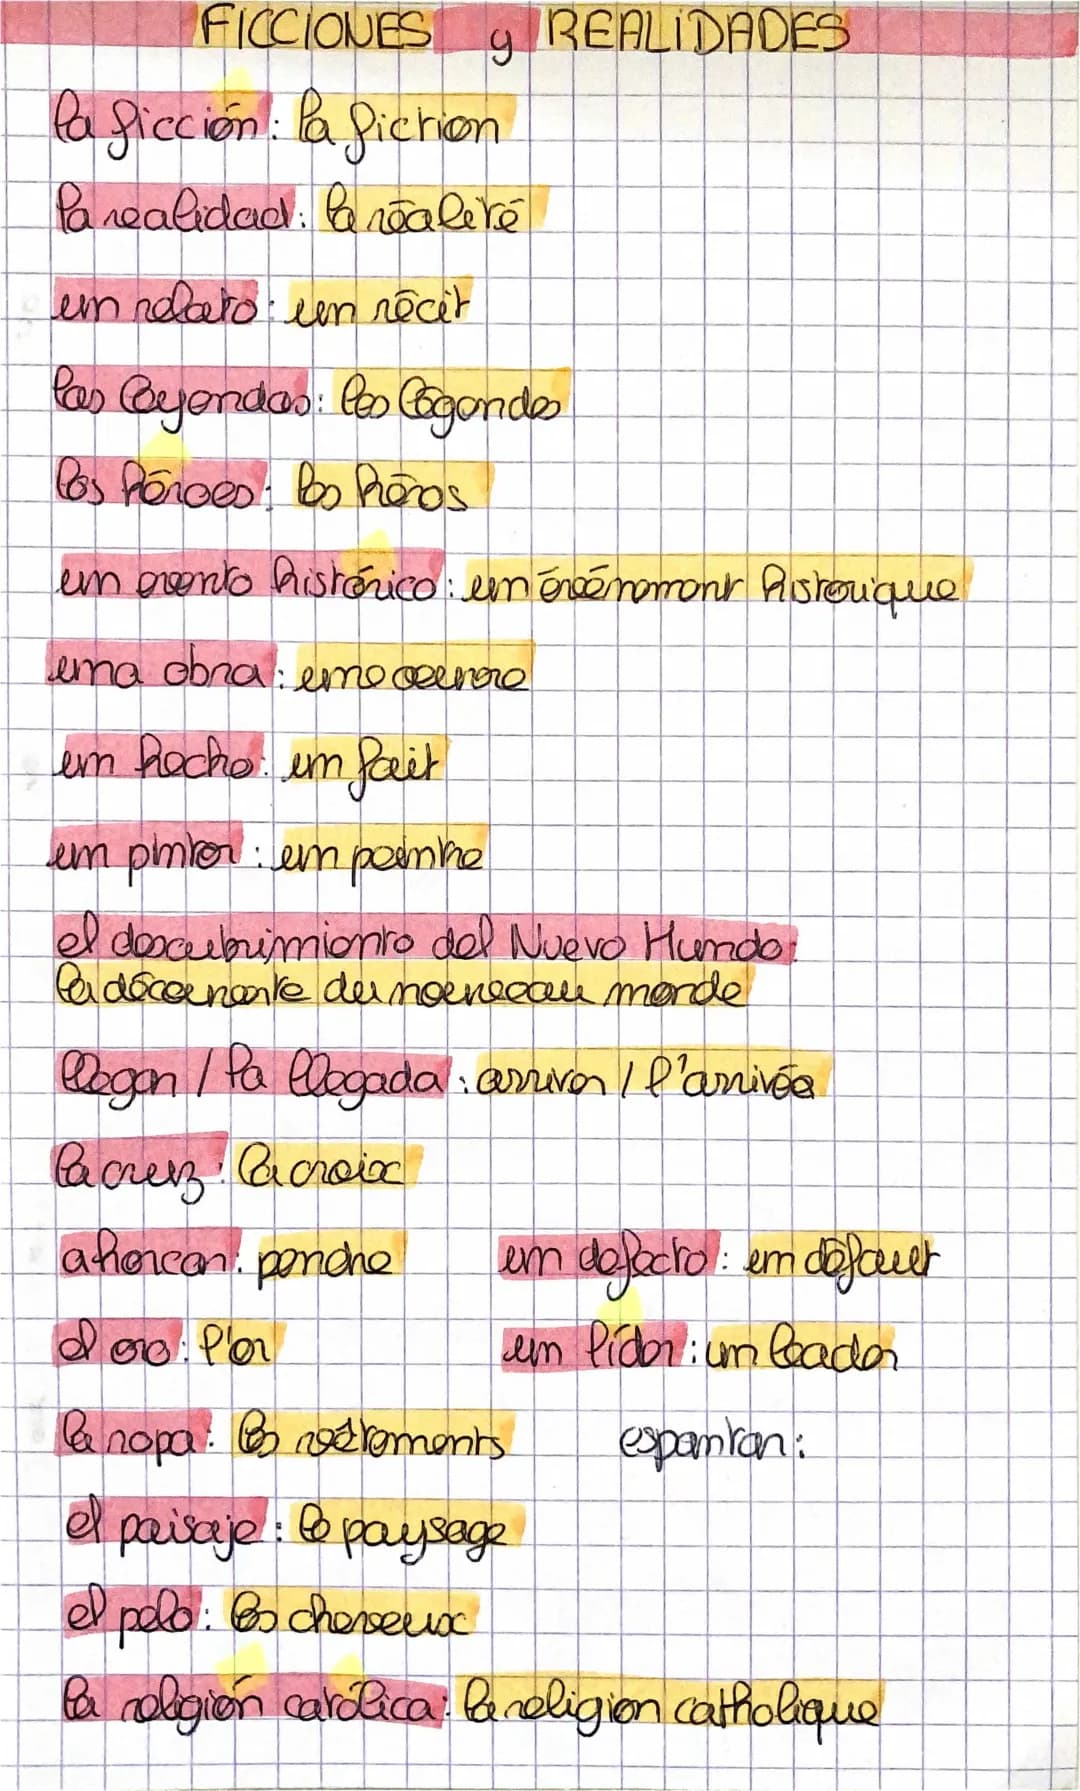 FICCIONES y REALIDADES
la ficción : la fiction
la realidad : la réalité
un relato : un récit
las leyendas : les légendes
los héroes : les héros
un evento histórico : un événement historique
una obra : une oeuvre
un hecho : un fait
un pintor : un peintre
el descubrimiento del Nuevo Mundo :
la découverte du nouveau monde
llegar / la llegada : arriver / l'arrivée
la cruz : la croix
ahorcar : pendre
un defecto : un défaut
el oro : l'or
un líder : un leader
la ropa : les vêtements
espantar :
el paisaje : le paysage
el pelo : les cheveux
la religión católica : la religion catholique